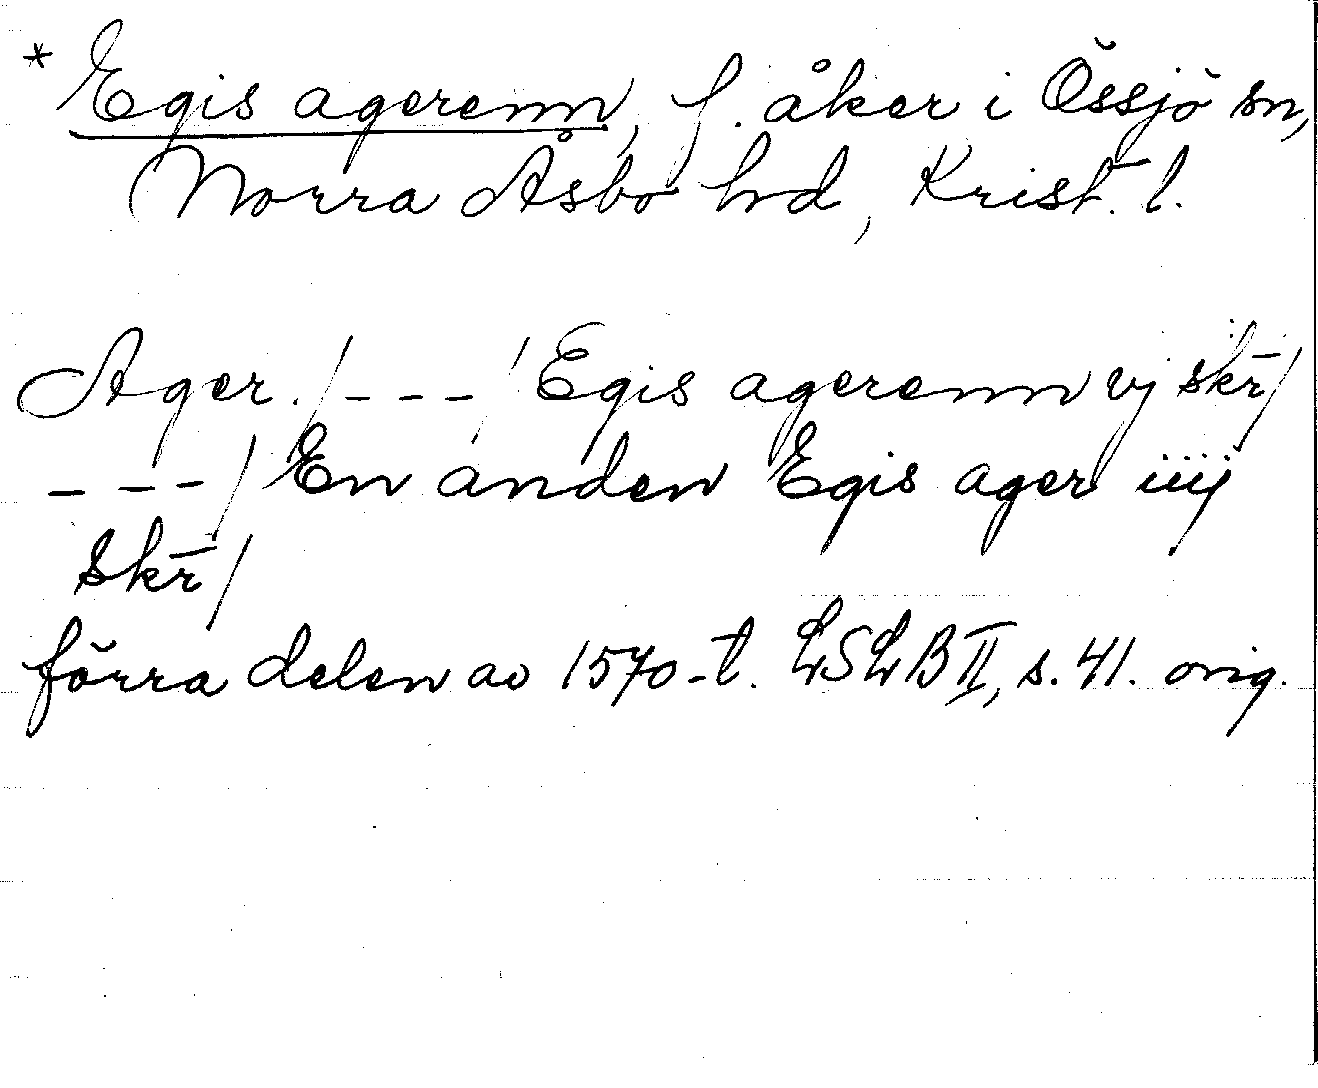 * Egis agerenn, f. åker i Össjö sn,
Norra Åsbo hd, Krist. l.
Ager. / - - - / Egis agerenn vj skr̄ /
- - - / En anden Egis ager iiij
skr̄ /
förra delen av 1570-t. LSLB II, s. 41. orig.